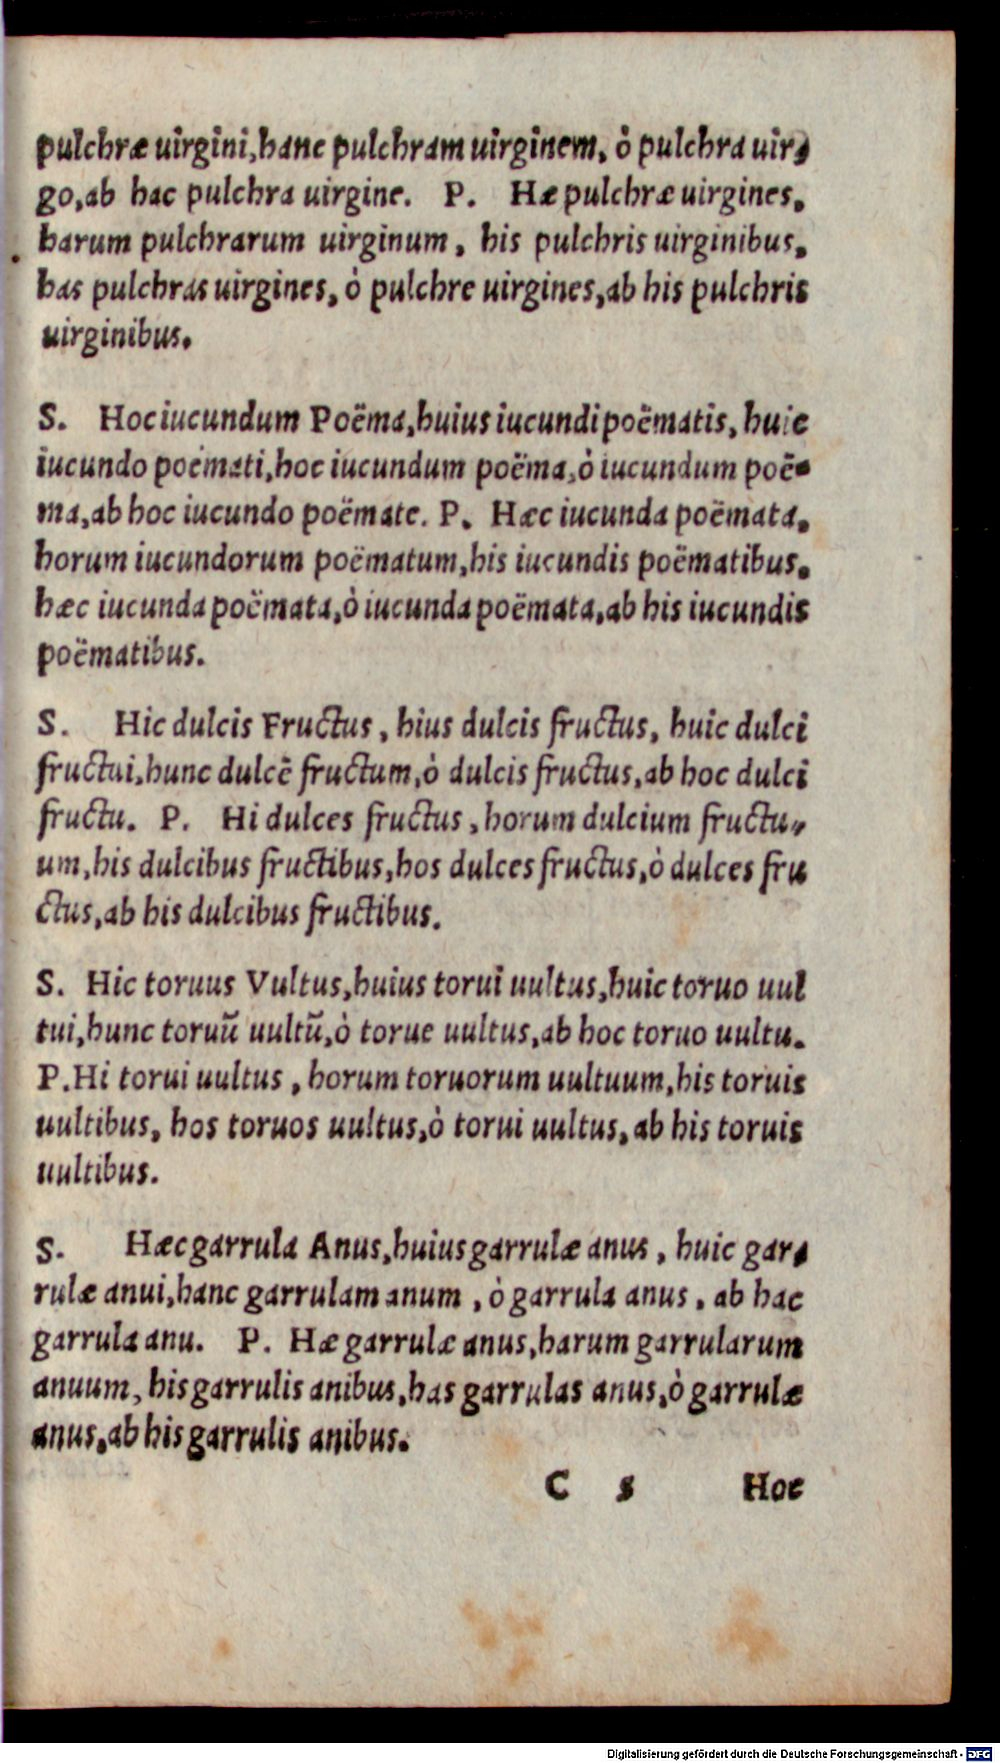 pulchræ uirgini,hanc pulchram uirginem, ò pulchra uir-
go,ab hac pulchra uirgine. P. Hæ pulchræ uirgines,
harum pulchrarum uirginum, his pulchris uirginibus,
has pulchras uirgines, ò pulchre uirgines,ab his pulchris
uirginibus.
S. Hoc iucundum Poëma,huius iucundi poëmatis, huic
iucundo poëmati,hoc iucundum poëma,ò iucundum poë-
ma,ab hoc iucundo poëmate. P. Hæc iucunda poëmata,
horum iucundorum poëmatum,his iucundis poëmatibus,
hæc iucunda poëmata,ò iucunda poëmata,ab his iucundis
poëmatibus.
S. Hic dulcis Fructus, hius dulcis fructus, huic dulci
fructui,hunc dulcē fructum,ò dulcis fructus,ab hoc dulci
fructu. P. Hi dulces fructus, horum dulcium fructu-
um,his dulcibus fructibus,hos dulces fructus,ò dulces fru
ctus,ab his dulcibus fructibus.
S. Hic toruus Vultus,huius torui uultus,huic toruo uul
tui,hunc toruū uultū,ò torue uultus,ab hoc toruo uultu.
P.Hi torui uultus, horum toruorum uultuum,his toruis
uultibus, hos toruos uultus,ò torui uultus,ab his toruis
uultibus.
S. Hæc garrula Anus,huius garrulæ anus, huic gar-
rulæ anui,hanc garrulam anum, ò garrula anus, ab hac
garrula anu. P. Hæ garrulæ anus,harum garrularum
anuum, his garrulis anibus,has garrulas anus,ò garrulæ
anus,ab his garrulis anibus.
C s Hoc
Digitalisierung gefördert durch die Deutsche Forschungsgemeinschaft - DFG